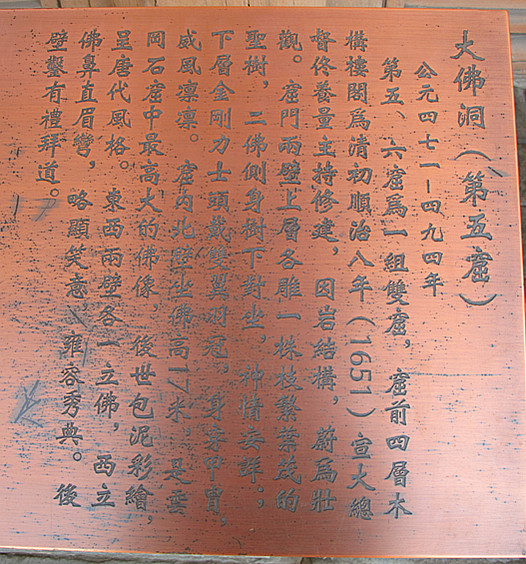 大佛洞(第五窟)
公元四七一–四九四年
第五、六窟爲一組雙窟,窟前四層木
構樓閣爲清初順治八年(1651)宣大總
督佟養量主持修建,因岩結構,蔚爲壯
觀。窟門兩壁上層各雕一株枝繁葉茂的
聖樹,二佛側身樹下對坐,神情安詳;
下層金剛力士頭戴雙翼羽冠,身穿甲冑,
威風凛凛。窟内北壁坐佛高17米,是雲
岡石窟中最高大的佛像,後世包泥彩繪,
呈唐代風格。東西兩壁各一立佛,西立
佛鼻直眉彎,略顯笑意,雍容秀典。後
壁鑿有禮拜道。